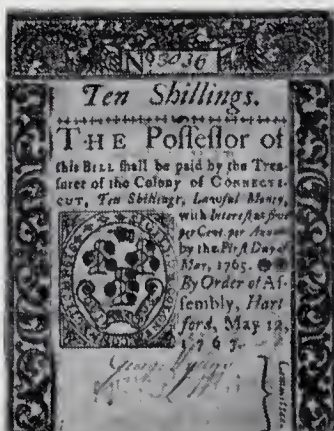 No 3036
Ten Shillings.
THE Poſſeſſor of
this BILL ſhall be paid by the Trea-
ſurer of the Colony of CONNECTI-
CUT, Ten Shillings, Lawful Money,
with Intereſt at five
per Cent. per Ann
by the Firſt Day of
May, 1765.
By Order of Aſ-
ſembly, Hart
ford, May 12,
1763.
George
Committee